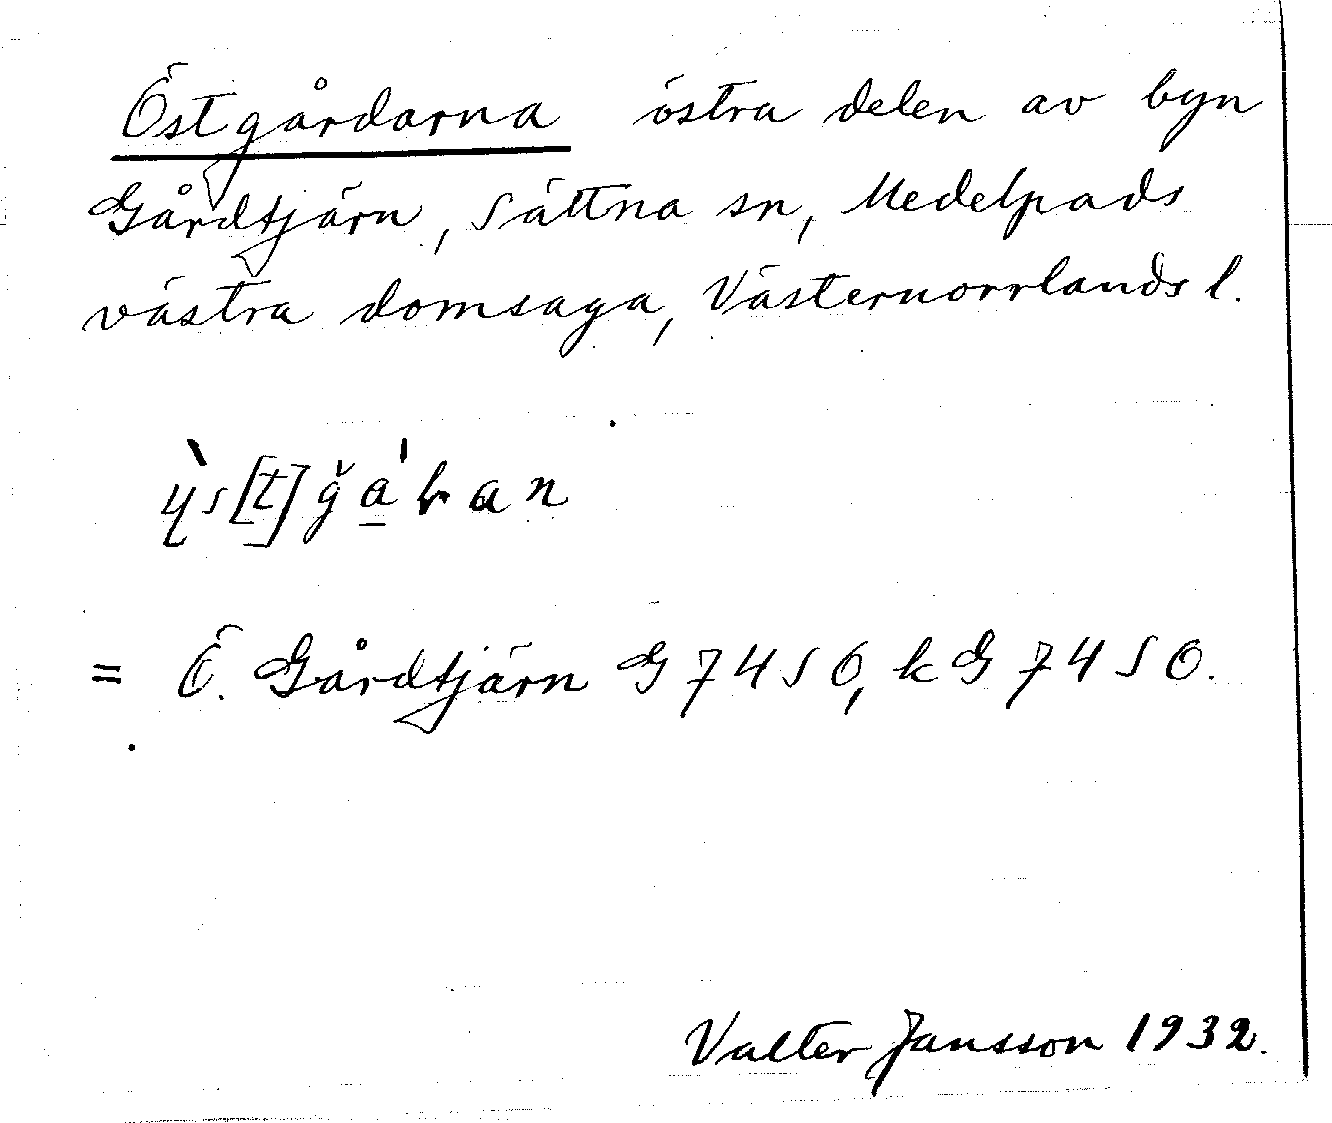 Östgårdarna östra delen av byn
Gårdtjärn, Sättna sn, Medelpads
västra domsaga, Västernorrlands l.
= Ö. Gårdtjärn G 7450, k G 7450.
Valter Jansson 1932.